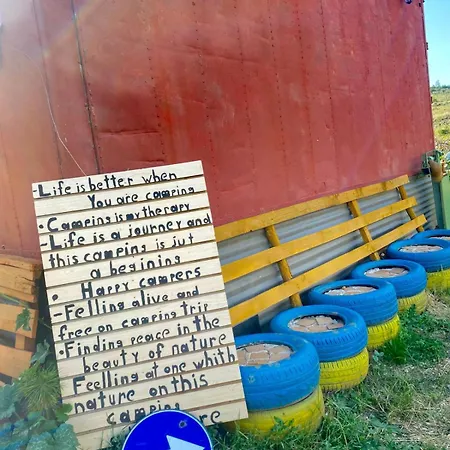 -Life is better when
You are camping
-Camping is my therapy
-Life is a journey and
this camping is jut
a begining
. Happy campers
-Felling alive and
free on camping trip
.Finding peace in the
beauty of nature
Feelling at one whith
nature on this
camping re